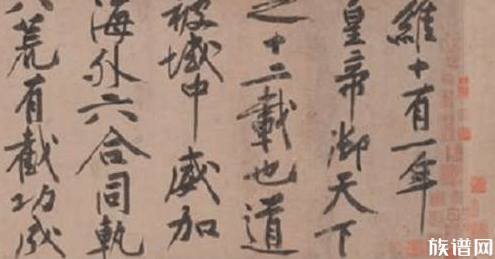 維十有一年
皇帝御天下
之十二載也道
被域中威加
海外六合同軌
八荒有截功成
族谱网